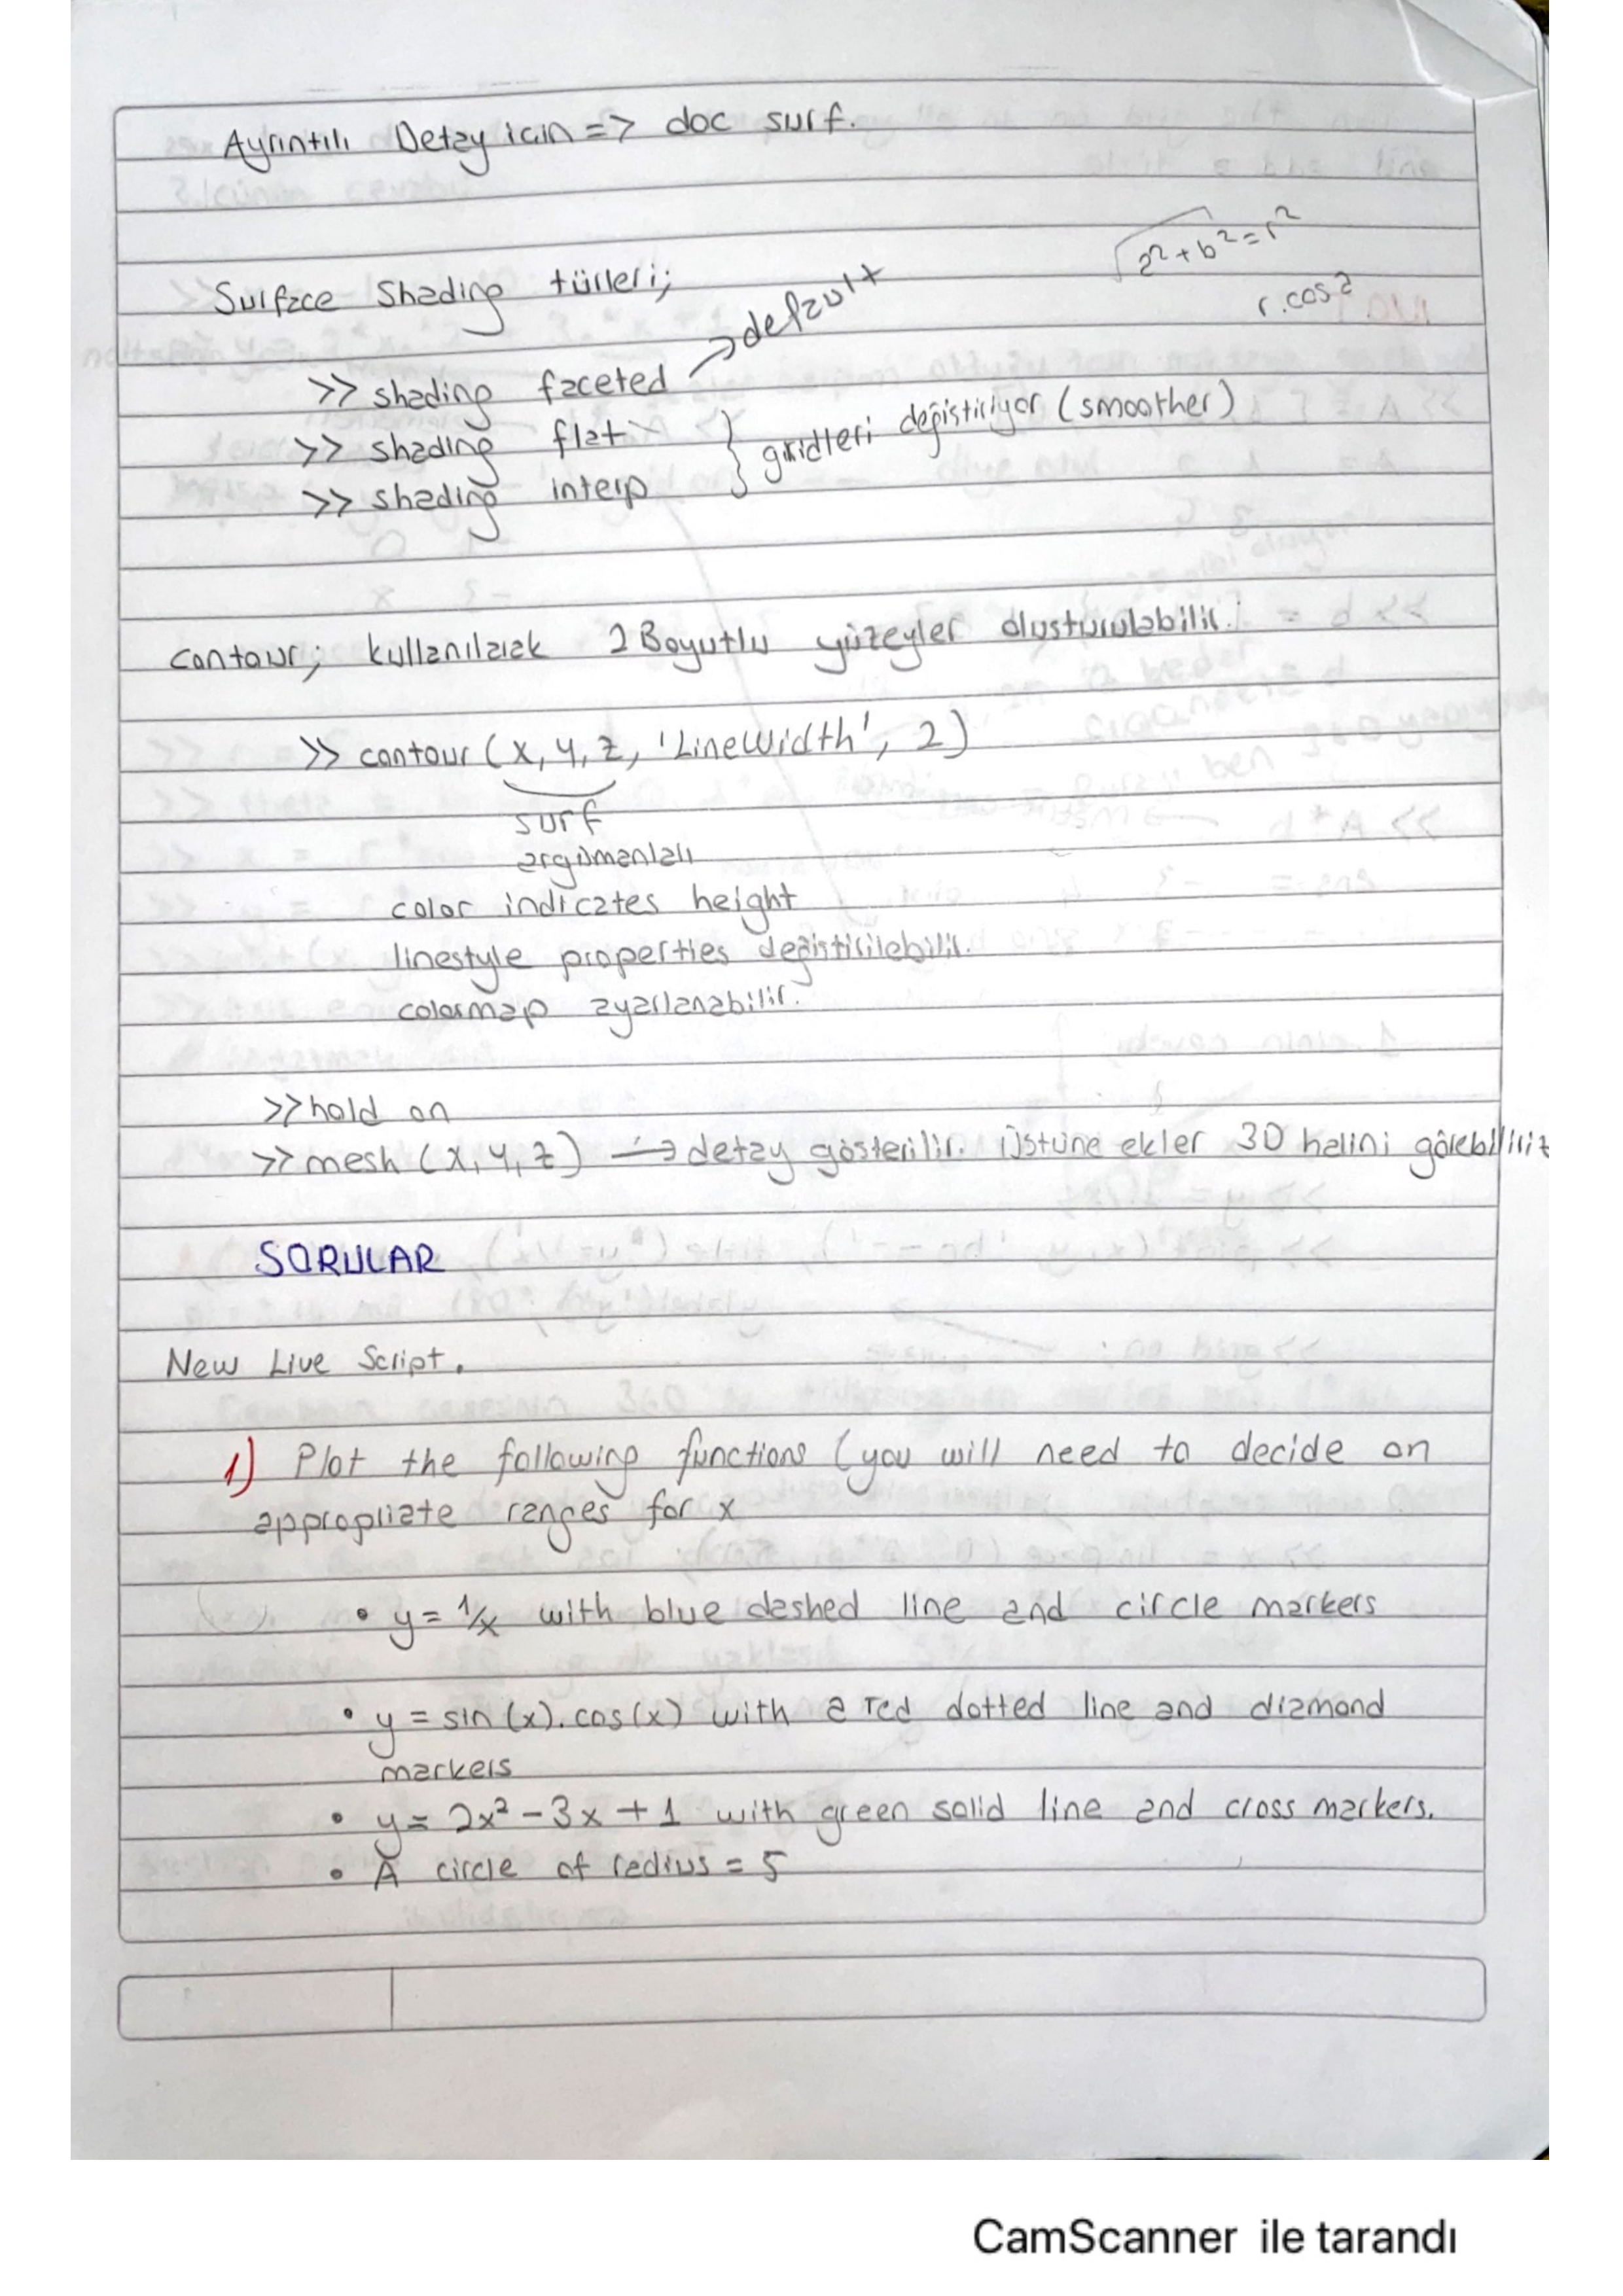 Ayrıntılı Detay için => doc surf.
√a²+b²=r²
r.cosa
Surface Shading türleri;
>> shading faceted → default
>> shading flat
>> shading interp } gridleri değiştiriyor (smoother)
contour; kullanılarak 2 Boyutlu yüzeyler oluşturulabilir.
>> contour (x, y, z, 'LineWidth', 2)
surf
argümanları
color indicates height
linestyle properties değiştirilebilir.
colormap ayarlanabilir.
>> hold on
>> mesh (x, y, z) → detay gösterilir. Üstüne ekler 3D halini görebiliriz
SORULAR
New Live Script.
1) Plot the following functions (you will need to decide on
appropriate ranges for x
• y = 1/x with blue dashed line and circle markers
• y = sin(x).cos(x) with a red dotted line and diamond
markers
• y = 2x² - 3x + 1 with green solid line and cross markers.
• A circle of radius = 5
CamScanner ile tarandı